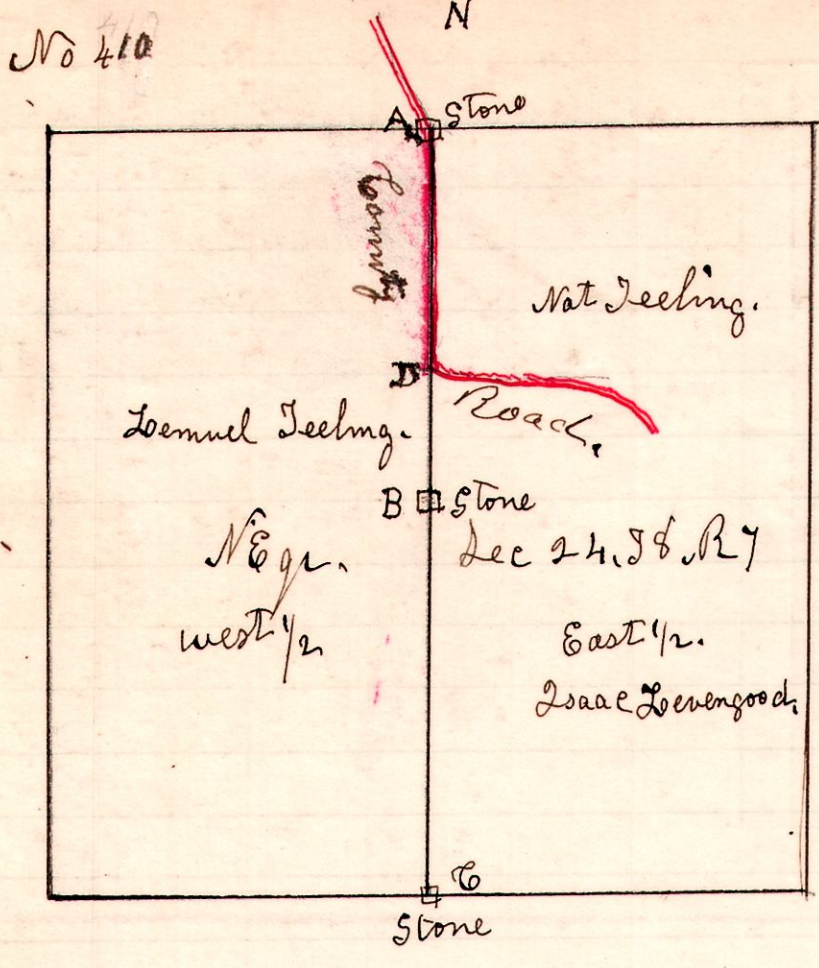 N
No 410
A Stone
County
Nat Teeling.
D
Road.
Lemuel Teeling.
B Stone
NE qr.
Sec 24, T8, R7
west 1/2
East 1/2.
Isaac Levengood.
C
Stone